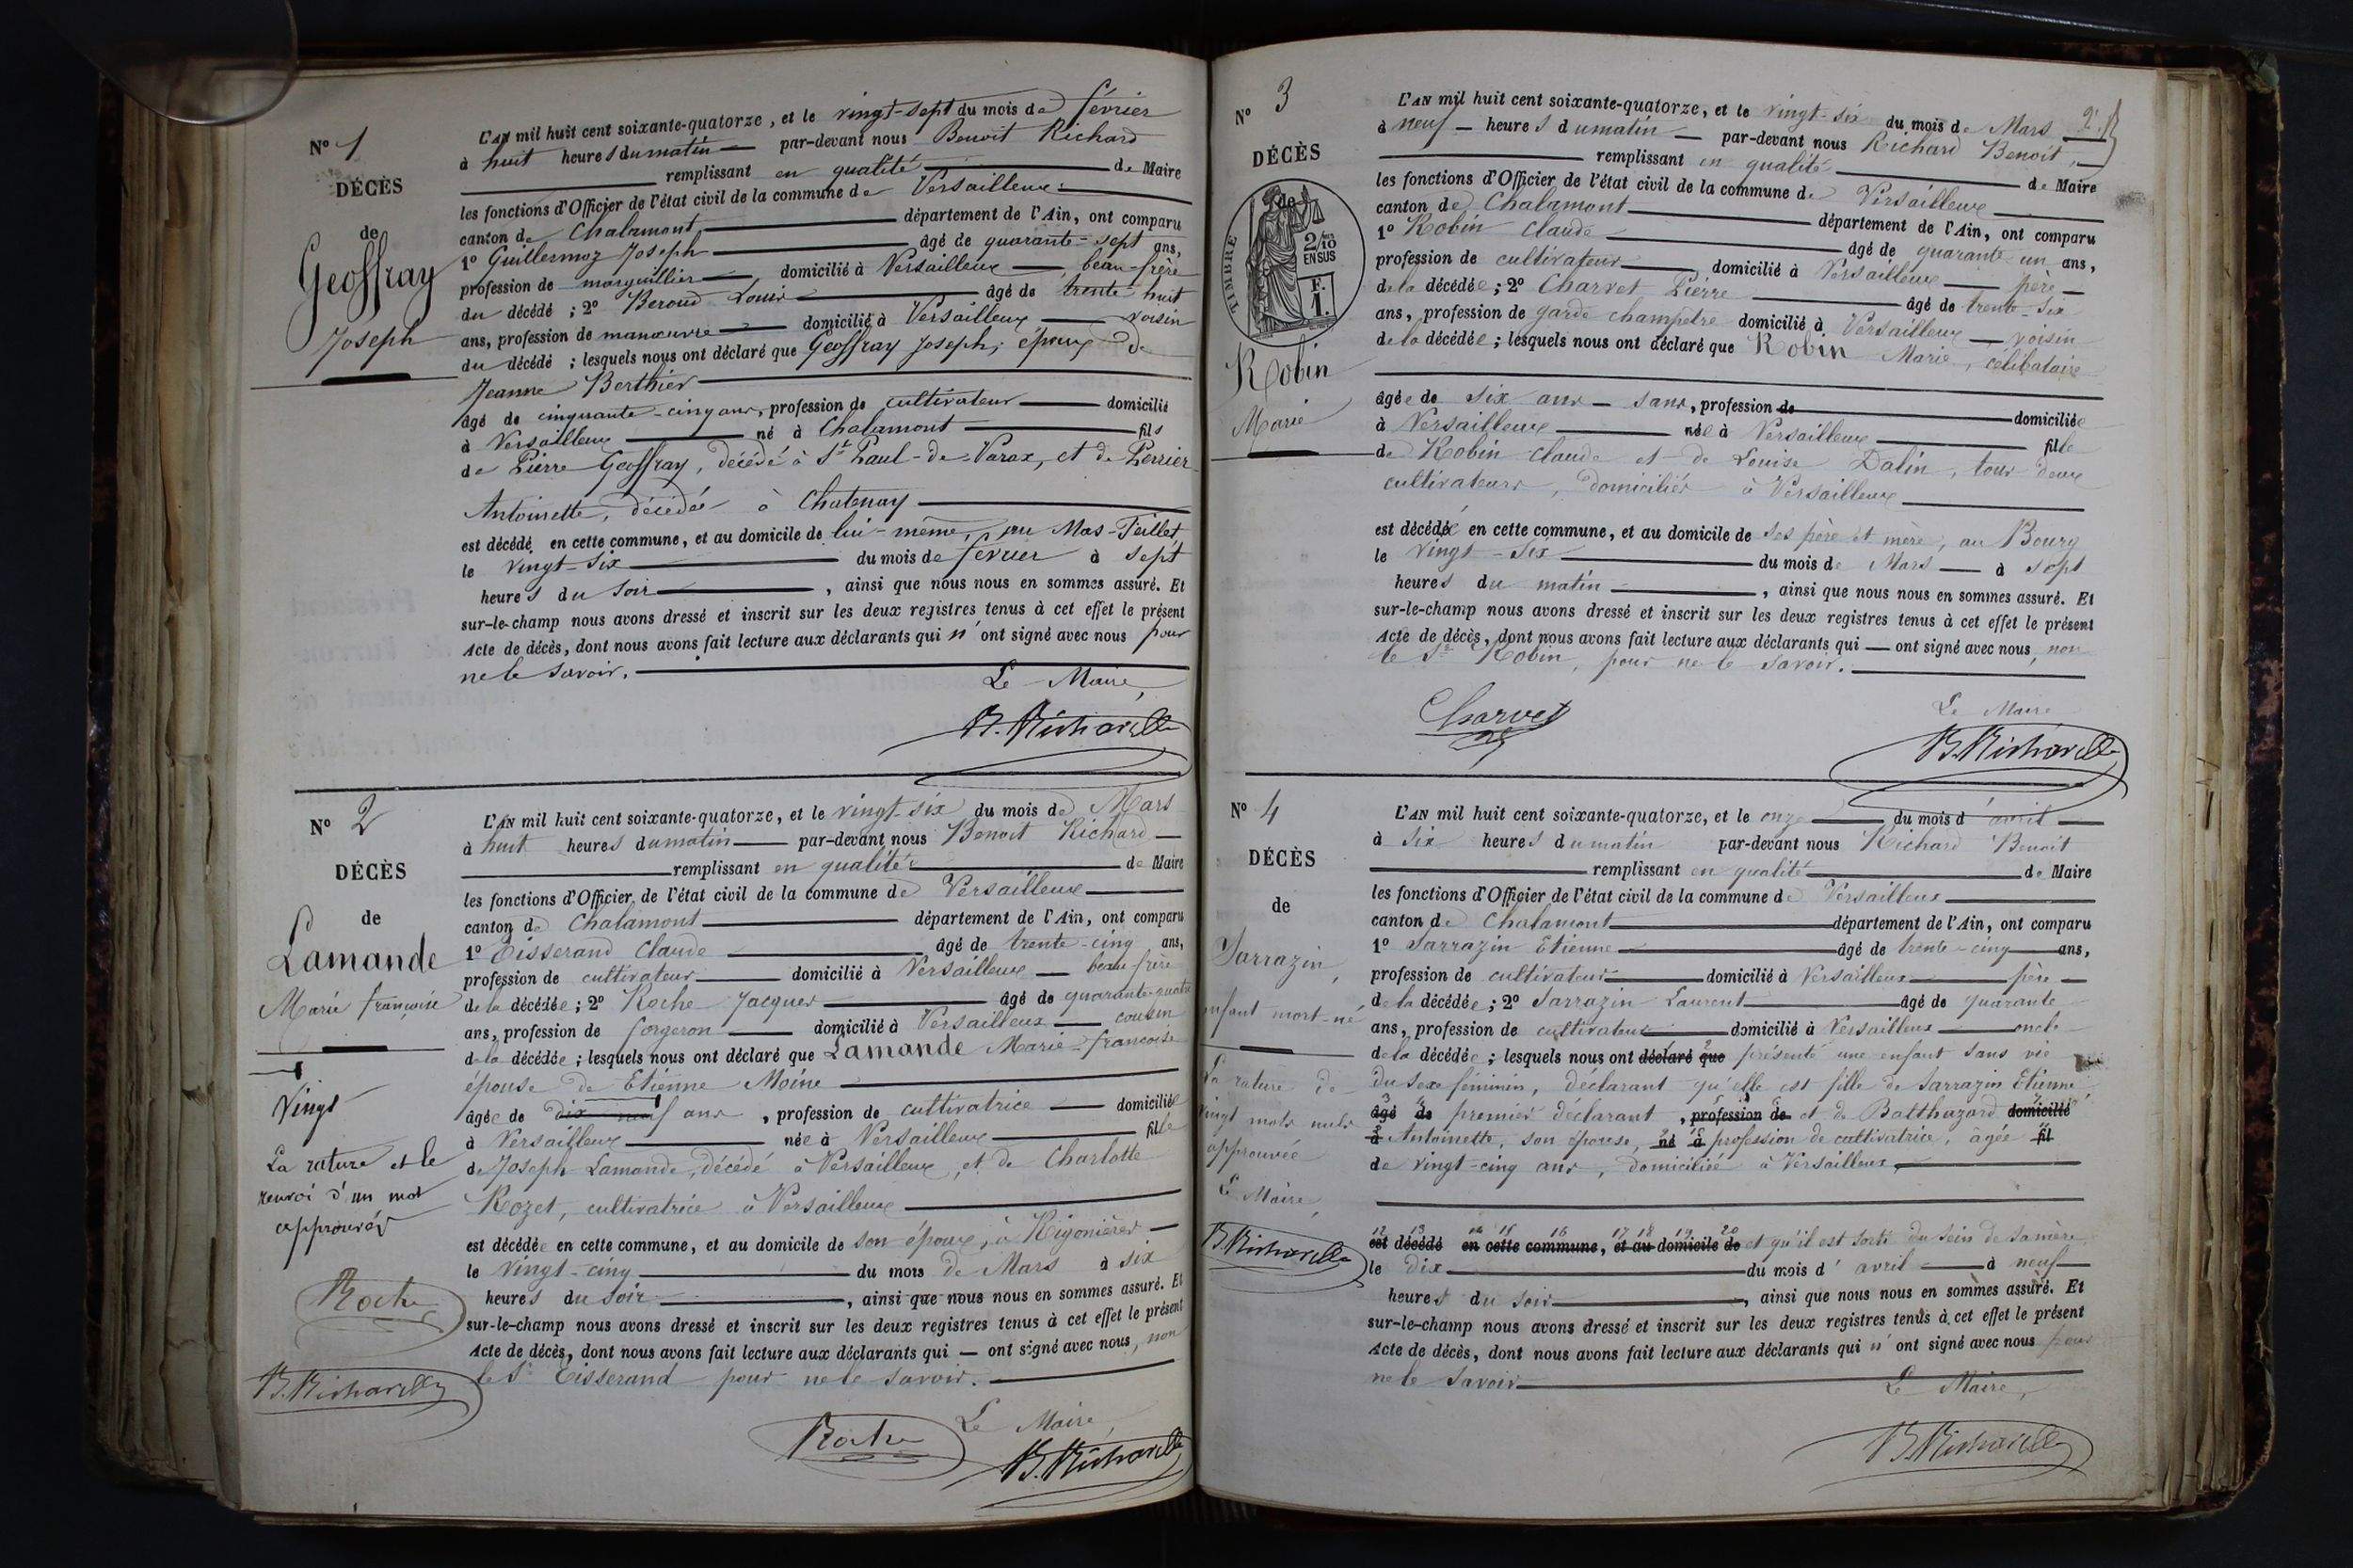 N° 1
DÉCÈS
de
Geoffray
Joseph
L'AN mil huit cent soixante-quatorze, et le vingt-sept du mois de février
à huit heures du matin par-devant nous Benoit Richard
remplissant en qualité de Maire
les fonctions d'Officier de l'état civil de la commune de Versailleux
canton de Chalamont département de l'Ain, ont comparu
1° Guillermoz Joseph âgé de quarante-sept ans,
profession de marguillier domicilié à Versailleux beau-frère
du décédé ; 2° Beroud Louis âgé de trente huit
ans, profession de manœuvre domicilié à Versailleux voisin
du décédé ; lesquels nous ont déclaré que Geoffray Joseph, époux de
Jeanne Berthier
âgé de cinquante-cinq ans, profession de cultivateur domicilié
à Versailleux né à Chalamont fils
de Pierre Geoffray, décédé à St Paul-de-Varax, et de Perrier
Antoinette, décédée à Chatenay
est décédé en cette commune, et au domicile de lui-même, au Mas-Teillet,
le vingt-six du mois de février à sept
heures du soir, ainsi que nous nous en sommes assuré. Et
sur-le-champ nous avons dressé et inscrit sur les deux registres tenus à cet effet le présent
Acte de décès, dont nous avons fait lecture aux déclarants qui n'ont signé avec nous pour
ne le savoir.
Le Maire,
B. Richard
N° 2
DÉCÈS
de
Lamande
Marie françoise
Vingt
La rature et le
renvoi d'un mot
approuvés
Roche
B. Richard
L'AN mil huit cent soixante-quatorze, et le vingt-six du mois de Mars
à huit heures du matin par-devant nous Benoit Richard
remplissant en qualité de Maire
les fonctions d'Officier de l'état civil de la commune de Versailleux
canton de Chalamont département de l'Ain, ont comparu
1° Tisserand Claude âgé de trente-cinq ans,
profession de cultivateur domicilié à Versailleux beau-frère
de la décédée ; 2° Roche Jacques âgé de quarante-quatre
ans, profession de forgeron domicilié à Versailleux cousin
de la décédée ; lesquels nous ont déclaré que Lamande Marie-françoise
épouse de Etienne Moine
âgée de dix neuf ans, profession de cultivatrice domiciliée
à Versailleux née à Versailleux fille
de Joseph Lamande, décédé à Versailleux, et de Charlotte
Rozet, cultivatrice à Versailleux
est décédée en cette commune, et au domicile de son époux, à Rigonières
le vingt-cinq du mois de Mars à six
heures du soir, ainsi que nous nous en sommes assuré. Et
sur-le-champ nous avons dressé et inscrit sur les deux registres tenus à cet effet le présent
Acte de décès, dont nous avons fait lecture aux déclarants qui ont signé avec nous, non
le Sr Tisserand pour ne le savoir.
Le Maire,
Roche
B. Richard
N° 3
DÉCÈS
de
TIMBRE
2/10 EN SUS
F. 1.
Robin
Marie
L'AN mil huit cent soixante-quatorze, et le vingt-six du mois de Mars
à neuf heures du matin par-devant nous Richard Benoit,
remplissant en qualité de Maire
les fonctions d'Officier de l'état civil de la commune de Versailleux
canton de Chalamont département de l'Ain, ont comparu
1° Robin Claude âgé de quarante-un ans,
profession de cultivateur domicilié à Versailleux père
de la décédée ; 2° Charvet Pierre âgé de trente-six
ans, profession de garde champêtre domicilié à Versailleux voisin
de la décédée ; lesquels nous ont déclaré que Robin Marie, célibataire
âgée de six ans sans, profession de domiciliée
à Versailleux née à Versailleux fille
de Robin Claude et de Louise Dalin, tous deux
cultivateurs, domiciliés à Versailleux
est décédée en cette commune, et au domicile de ses père et mère, au Bourg
le vingt-six du mois de Mars à sept
heures du matin, ainsi que nous nous en sommes assuré. Et
sur-le-champ nous avons dressé et inscrit sur les deux registres tenus à cet effet le présent
Acte de décès, dont nous avons fait lecture aux déclarants qui ont signé avec nous, non
le Sr Robin, pour ne le savoir.
Charvet
Le Maire
B. Richard
N° 4
DÉCÈS
de
Sarrazin,
enfant mort-né
La rature de
vingt mots nuls
approuvée
Le Maire,
B. Richard
L'AN mil huit cent soixante-quatorze, et le onze du mois d'avril
à six heures du matin par-devant nous Richard Benoit
remplissant en qualité de Maire
les fonctions d'Officier de l'état civil de la commune de Versailleux
canton de Chalamont département de l'Ain, ont comparu
1° Sarrazin Etienne âgé de trente-cinq ans,
profession de cultivateur domicilié à Versailleux père
de la décédée ; 2° Sarrazin Laurent âgé de quarante
ans, profession de cultivateur domicilié à Versailleux oncle
de la décédée ; lesquels nous ont déclaré que présenté une enfant sans vie
du sexe féminin, déclarant qu'elle est fille de Sarrazin Etienne
âgé de premier déclarant, profession de et de Balthazard domicilié
à Antoinette, son épouse, né à profession de cultivatrice, âgée fil
de vingt-cinq ans, domiciliée à Versailleux,
est décédé en cette commune, et au domicile de et qu'il est sorti du sein de sa mère
le dix du mois d'avril à neuf
heures du soir, ainsi que nous nous en sommes assuré. Et
sur-le-champ nous avons dressé et inscrit sur les deux registres tenus à cet effet le présent
Acte de décès, dont nous avons fait lecture aux déclarants qui n'ont signé avec nous pour
ne le savoir
Le Maire,
B. Richard